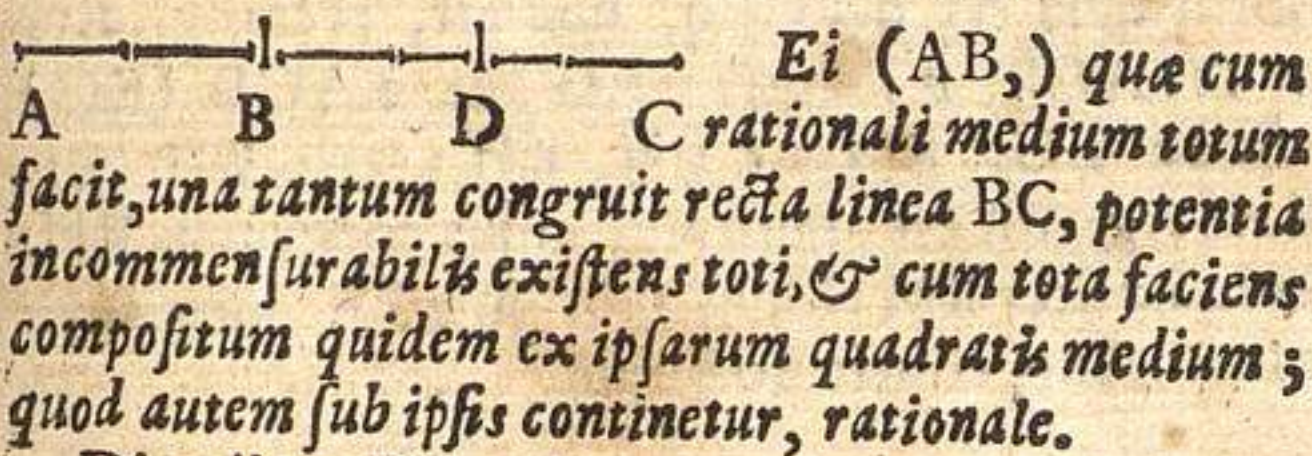 Ei (AB,) quæ cum
A B D C rationali medium totum
facit, una tantum congruit recta linea BC, potentia
incommenſurabilis exiſtens toti, & cum tota faciens
compoſitum quidem ex ipſarum quadratis medium ;
quod autem ſub ipſis continetur, rationale.